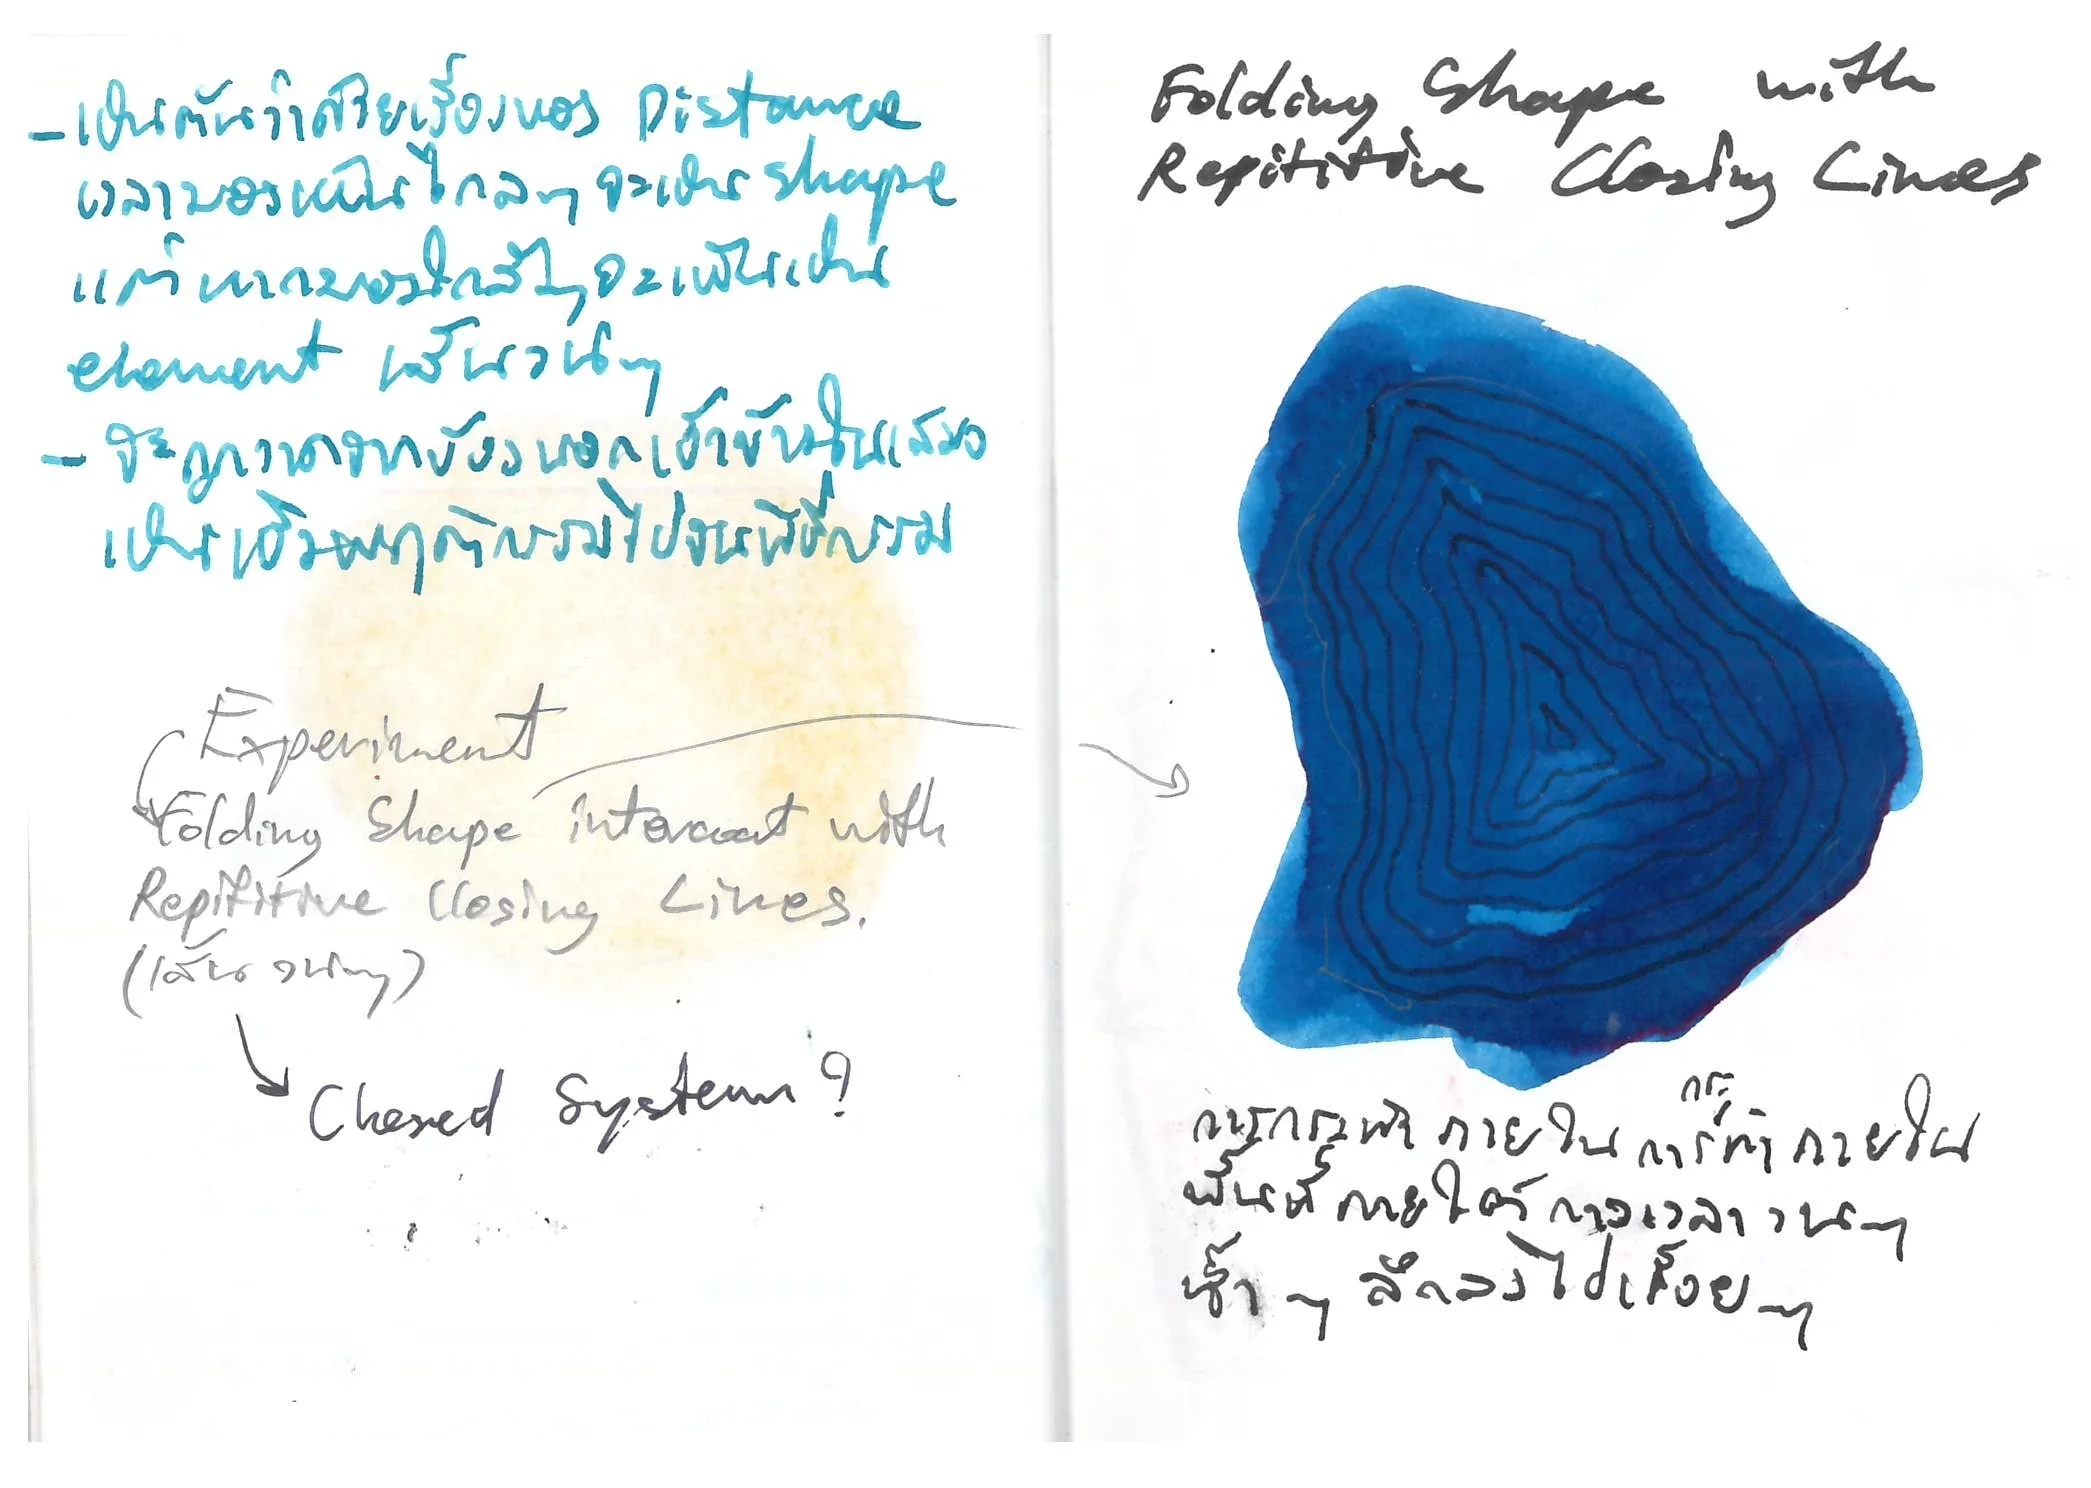 - เป็นต้นว่าด้วยเรื่องของ Distance
เวลามองเห็นไกลๆ จะเป็น shape
แต่หากมองใกล้ๆ จะเห็นเป็น
element เส้นวนๆ
- จะถูกวาดจากข้างนอกเข้าข้างในเสมอ
เป็นเชิงพฤติกรรมไปจนพิธีกรรม
Experiment
Folding Shape interact with
Repititive Closing Lines.
(เส้นวนๆ)
Closed System?
Folding Shape with
Repititive Closing Lines
กระ
การกระทำ ภายใน การทำ ภายใน
พื้นที่ ภายใต้ กาลเวลา วนๆ
ซ้ำ ๆ ลึกลงไปเรื่อย ๆ